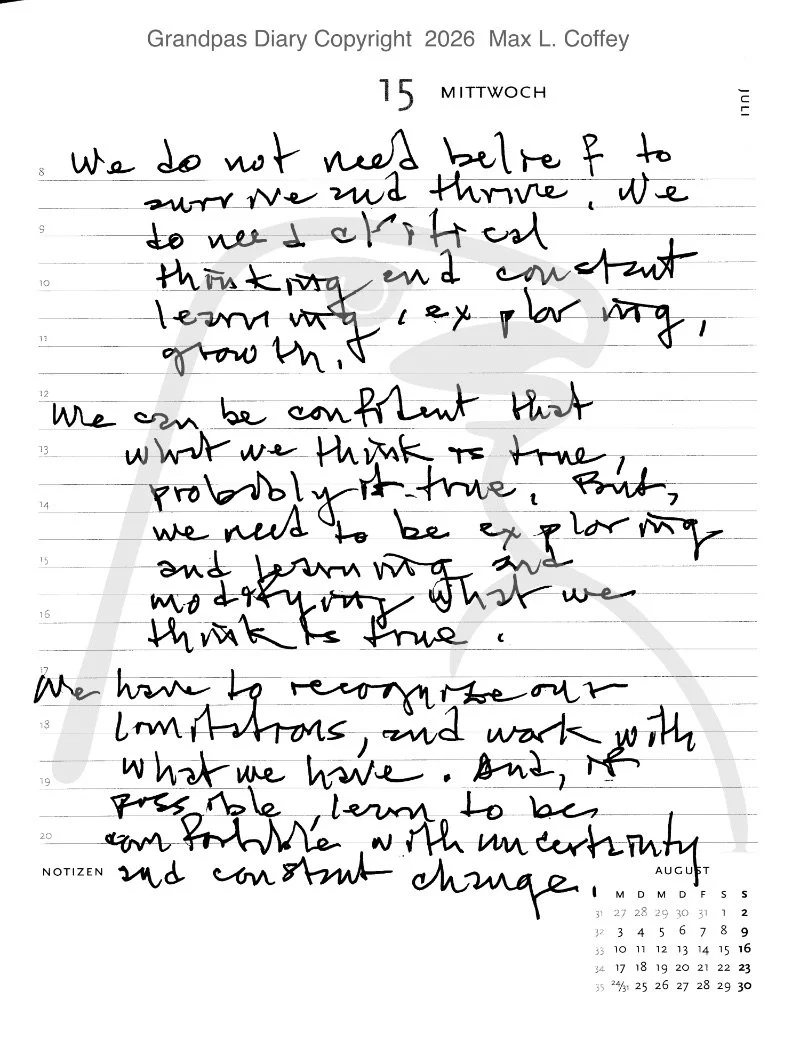 Grandpas Diary Copyright 2026 Max L. Coffey
15 MITTWOCH
JULI
8 We do not need belief to
survive and thrive. We
9 do need critical
10 thinking and constant
learning, exploring,
11 growth.
12 We can be confident that
13 what we think is true,
probably is true. But,
14 we need to be exploring
15 and learning and
modifying what we
16 think is true.
17 We have to recognize our
18 limitations, and work with
what we have. And, if
19 possible, learn to be
20 comfortable with uncertainty
NOTIZEN and constant change.
AUGUST
M D M D F S S
31 27 28 29 30 31 1 2
32 3 4 5 6 7 8 9
33 10 11 12 13 14 15 16
34 17 18 19 20 21 22 23
35 24/31 25 26 27 28 29 30